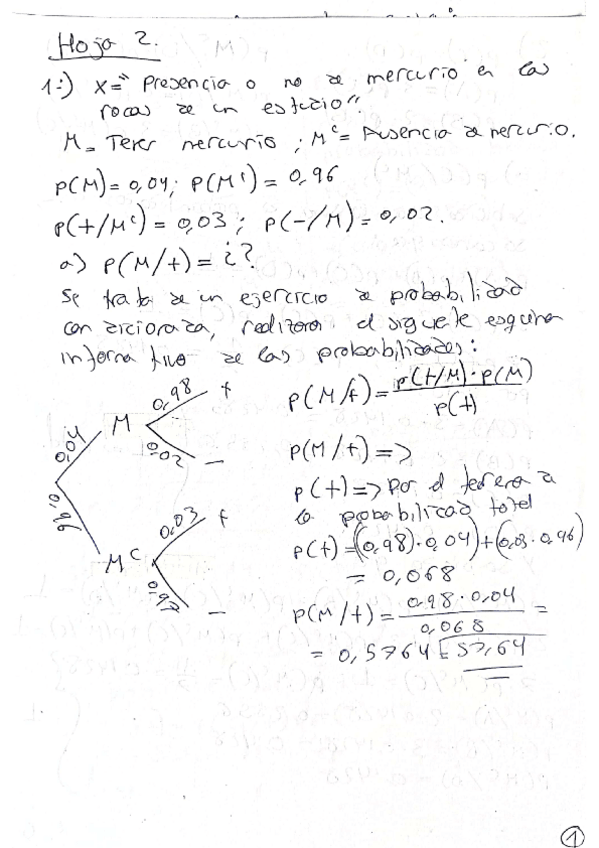 Hoja 2.
1:) X="Presencia o no de mercurio en las
rocas de un estudio"
M= Tener mercurio ; Mᶜ= Ausencia de mercurio.
P(M)=0,04; P(Mᶜ)= 0,96
P(+/Mᶜ)= 0,03 ; P(-/M)= 0,02.
a) P(M/+)= ¿?
Se trata de un ejercicio de probabilidad
condicionada, realizamos el siguiente esquema
informativo de las probabilidades:
0,04 M 0,98 +
0,02 -
0,96 Mᶜ 0,03 +
0,97 -
P(M/+)= P(+/M)·P(M)
P(+)
P(M/+)=>
P(+)=> Por el teorema de
la probabilidad total
P(+)=(0,98)·0,04)+(0,03·0,96)
= 0,068
P(M/+)= 0,98·0,04 =
0,068
= 0,5764 [57,64
1